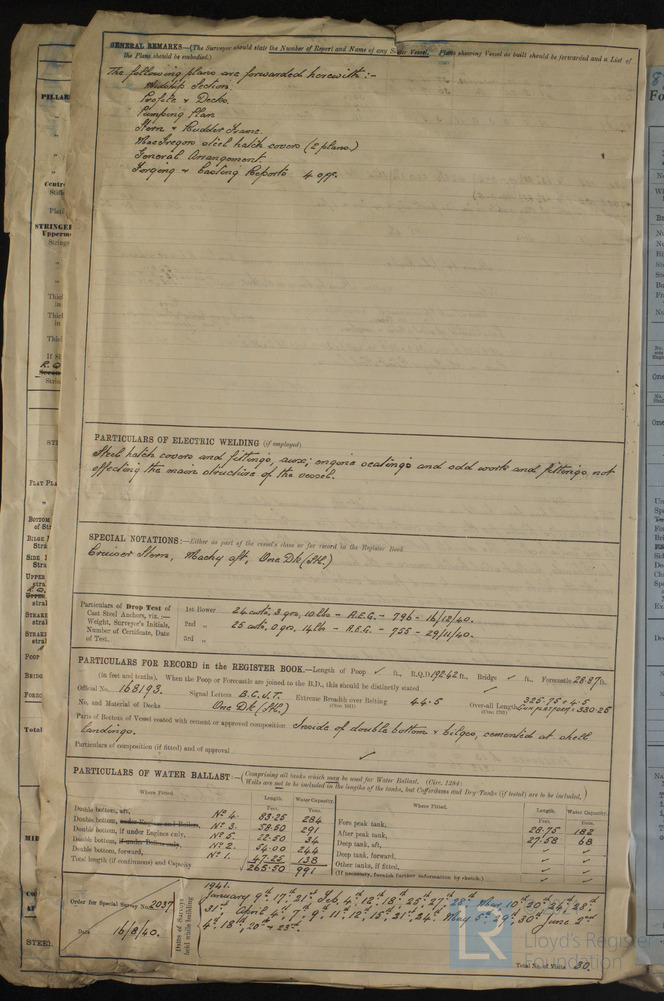 GENERAL REMARKS—(The Surveyor should state the Number of Report and Name of any Sister Vessel. Plans showing Vessel as built should be forwarded and a List of
the Plans should be embodied.)
The following plans are forwarded herewith :-
Midship Section.
Profile & Decks.
Pumping Plan
Stern & Rudder Frame.
MacGregor steel hatch covers (2 plans.)
General Arrangement
Forging & Casting Reports 4 off.
PARTICULARS OF ELECTRIC WELDING (if employed)
Steel hatch covers and fittings, aux; engine seatings and odd works and fittings not
effecting the main structure of the vessel.
SPECIAL NOTATIONS:—Either as part of the vessel's class or for record in the Register Book
Cruiser Stern, Machy aft, One Dk (Stl.)
Particulars of Drop Test of
Cast Steel Anchors, viz.:—
Weight, Surveyor's Initials,
Number of Certificate, Date
of Test.
1st Bower 24 cwts, 3 qrs, 10 lbs - A.E.G. - 796 - 16/12/40.
2nd „ 25 cwts, 0 qrs, 14 lbs - A.E.G. - 755 - 29/11/40.
3rd „
PARTICULARS FOR RECORD in the REGISTER BOOK.—Length of Poop ✓ ft., R.Q.D. 192.42 ft., Bridge ✓ ft., Forecastle 28.87 ft.
(in feet and tenths). When the Poop or Forecastle are joined to the B.D., this should be distinctly stated ✓
Official No. 168193. Signal Letters B.C.J.T. Extreme Breadth over Belting 44.5 Over-all Length 325.75 + 4.5
No. and Material of Decks One Dk (Stl.) = 330.25
Parts of Bottom of Vessel coated with cement or approved composition Inside of double bottom & bilges, cemented at shell
landings.
Particulars of composition (if fitted) and of approval ✓
PARTICULARS OF WATER BALLAST:—(Comprising all tanks which may be used for Water Ballast. (Circ. 1284)
Wells are not to be included in the lengths of the tanks, but Cofferdams and Dry-Tanks (if tested) are to be included.)
Where Fitted. Length. Water Capacity. Where Fitted. Length. Water Capacity.
Feet. Tons. Feet. Tons.
Double bottom, aft, No 4. 83.25 284
Double bottom, under Engines and Boilers, No 3. 58.50 291
Double bottom, if under Engines only, No 5. 22.50 34
Double bottom, if under Boilers only, No 2. 54.00 244
Double bottom, forward, No 1. 47.25 138
Total length (if continuous) and Capacity 265.50 991
Fore peak tank, 28.75 182
After peak tank, 27.58 68
Deep tank, aft, ✓ ✓
Deep tank, forward, ✓ ✓
Other tanks, if fitted, ✓ ✓
(If necessary, furnish further information by sketch.)
Order for Special Survey No. 2037
Date 16/8/40.
Dates of Surveys
held while building
1941.
January 9th 17th 21st Feb. 4th 12th 18th 25th 27th 28th Mar 10th 20th 24th 28th
31st April 4th 7th 9th 11th 12th 15th 21st 24th May 5th 29th 30th June 2nd
4th 18th, 20th & 23rd.
Total No. of Visits 30.
LR
Lloyd's Register
Foundation